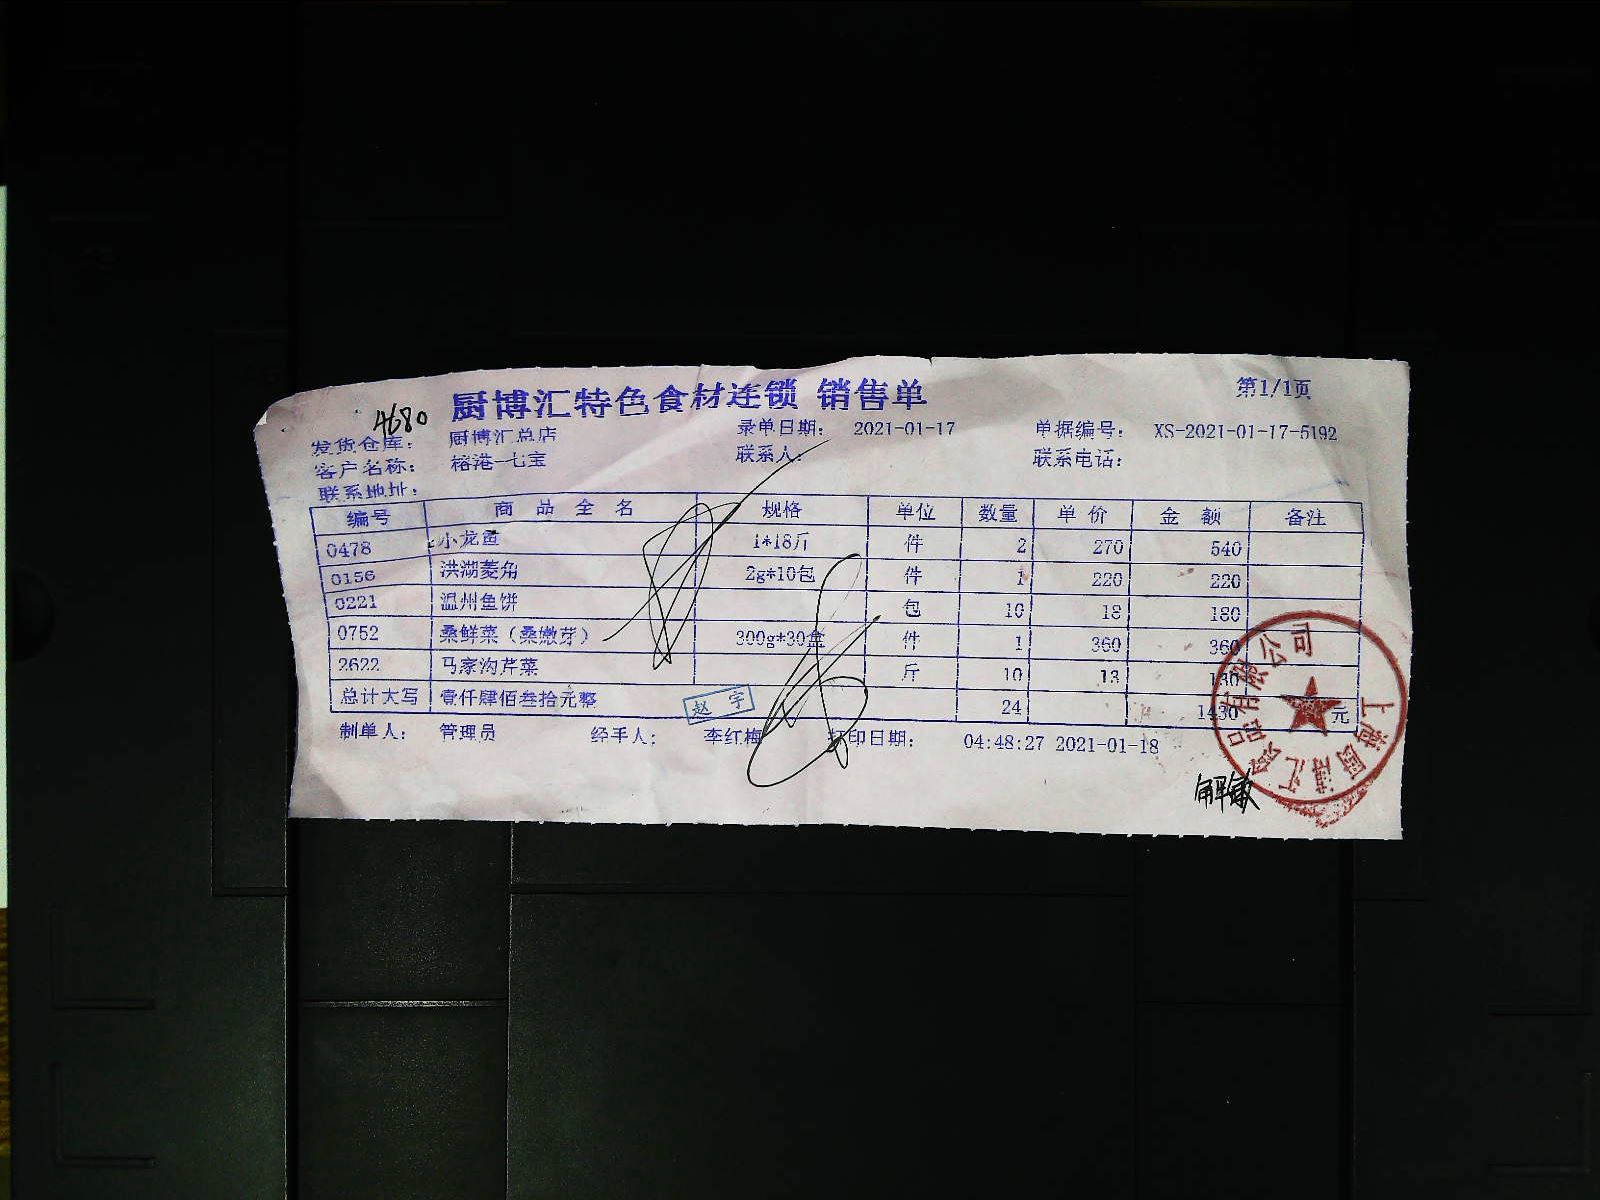 厨博汇特色食材连锁 销售单
第1/1页
4680
发货仓库： 厨博汇总店 录单日期： 2021-01-17 单据编号： XS-2021-01-17-5192
客户名称： 榕港-七宝 联系人： 联系电话：
联系地址：
编号 商品全名 规格 单位 数量 单价 金额 备注
0478 小龙鱼 1*18斤 件 2 270 540
0156 洪湖菱角 2g*10包 件 1 220 220
0221 温州鱼饼 包 10 18 180
0752 桑鲜菜（桑嫩芽） 300g*30盒 件 1 360 360
2622 马家沟芹菜 斤 10 13 130
总计大写 壹仟肆佰叁拾元整 24 1430 元
赵宇
制单人： 管理员 经手人： 李红梅 打印日期： 04:48:27 2021-01-18
上海厨博汇食品有限公司
解敏